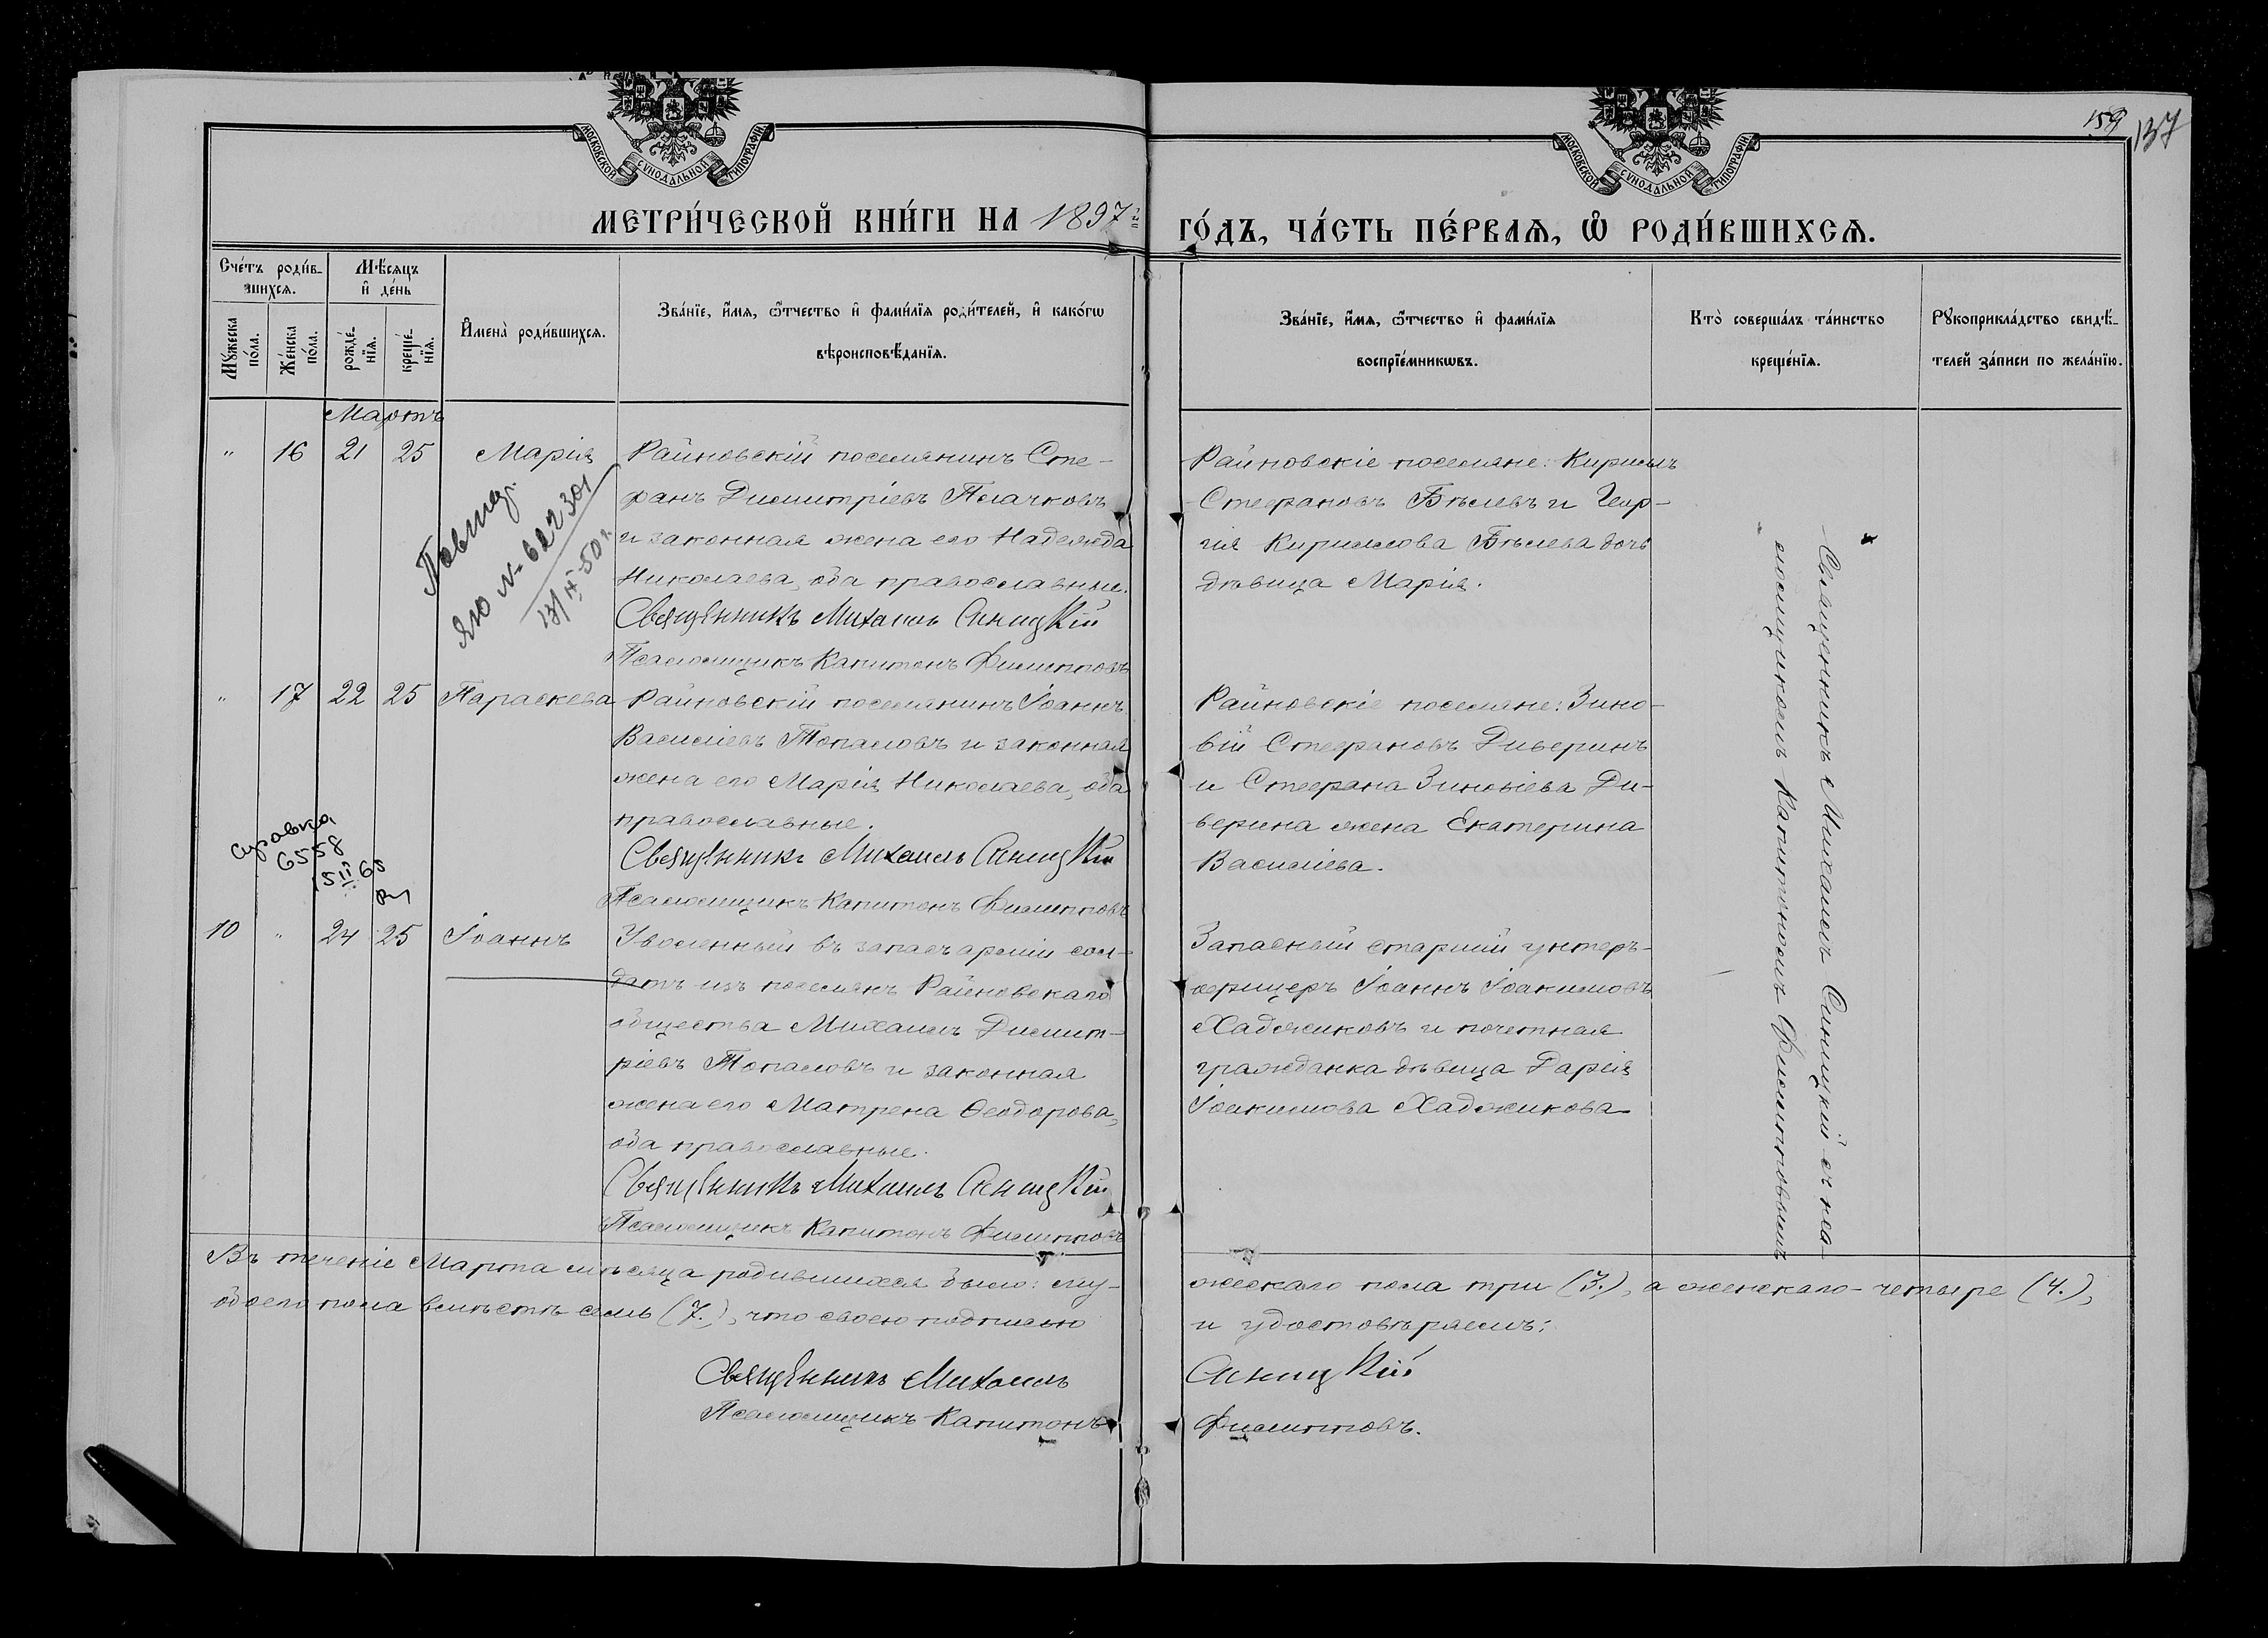 МОСКОВСКОЙ СѴНОДАЛЬНОЙ ТИПОГРАФІИ
МОСКОВСКОЙ СѴНОДАЛЬНОЙ ТИПОГРАФІИ
159
137
МЕТРИ́ЧЕСКОЙ КНИ́ГИ НА 1897й ГО́ДЪ, ЧА́СТЬ ПЕ́РВАѦ, Ѡ҆ РОДИ́ВШИХСѦ.
Сче́тъ роди́в-
шихсѧ.
Мѣ́сѧцъ
и҆ де́нь
Мꙋ́жеска
по́ла.
Же́нска
по́ла.
рожде́-
нїѧ.
креще́-
нїѧ.
И҆мена̀ роди́вшихсѧ.
Зва́нїе, и҆́мѧ, ѻ҆́тчество и҆ фами́лїѧ роди́телей, и҆ како́гѡ
вѣроисповѣ́данїѧ.
Зва́нїе, и҆́мѧ, ѻ҆́тчество и҆ фами́лїѧ
воспрїе́мникѡвъ.
Кто̀ соверша́лъ та́инство
креще́нїѧ.
Рꙋкоприкла́дство свидѣ́-
телей за́писи по жела́нїю.
Мартъ
" 16 21 25 Марія
Райновскій поселянинъ Сте-
фанъ Димитріевъ Пачковъ
и законная жена его Надежда
Николаева, оба православные.
Священникъ Михаилъ Синицкій
Псаломщикъ Капитонъ Филипповъ
Райновскіе поселяне: Кириллъ
Стефановъ Бѣлевъ и Геор-
гія Кириллова Бѣлева дочь
дѣвица Марія.
Повтор.
ЯЮ № 622301
13/IX-50 г.
" 17 22 25 Параскева
Райновскій поселянинъ Іоаннъ
Василіевъ Топаловъ и законная
жена его Марія Николаева, оба
православные.
Священникъ Михаилъ Синицкій
Псаломщикъ Капитонъ Филипповъ
Райновскіе поселяне: Зино-
вій Стефановъ Диверинъ
и Стефана Зиновіева Ди-
верина жена Екатерина
Василіева.
Справка
6558
15 III 60
10 " 24 25 Іоаннъ
Уволенный въ запасъ арміи сол-
датъ изъ поселянъ Райновскаго
общества Михаилъ Димит-
ріевъ Топаловъ и законная
жена его Матрена Ѳеодорова,
оба православные.
Священникъ Михаилъ Синицкій
Псаломщикъ Капитонъ Филипповъ
Запасный старшій унтеръ-
офицеръ Іоаннъ Іоакимовъ
Хаджиковъ и почетная
гражданка дѣвица Дарія
Іоакимова Хаджикова
Священникъ Михаилъ Синицкій съ пса-
ломщикомъ Капитономъ Филипповымъ
Въ теченіе Марта мѣсяца родившихся было: му-
жескаго пола три (3.), а женскаго - четыре (4.),
обоего пола вмѣстѣ семь (7.), что своею подписью
и удостовѣряемъ:
Священникъ Михаилъ Синицкій
Псаломщикъ Капитонъ Филипповъ.